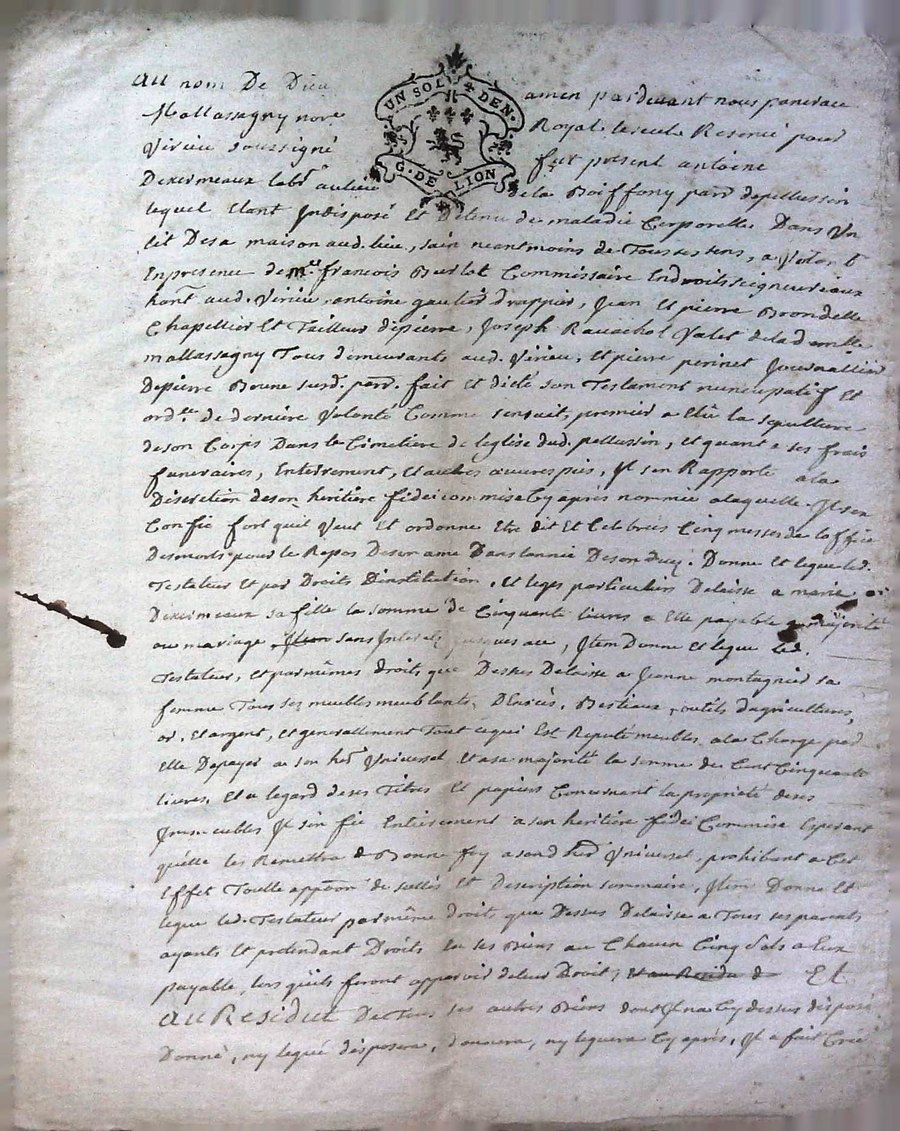 UN SOL DEN.
G. DE LION
au nom De Dieu amen pardevant nous pancrace
Mallassagny nore Royal Reservé pour
Virieu soussigné fut present antoine
Dexermeaux labr au lieu de la Boiffony parr de pellussin
lequel Etant Indisposé Et Detenu de maladie Corporelle Dans Un
lit De sa maison aud. lieu, sain neantmoins de Tous ses sens, a
En presence de me. francois Burlat Commissaire En droits seigneuriaux
hant aud. Virieu, antoine gaultier drappier, Jean Et pierre Brondelle
Chapellier Et Tailleur de pierre, Joseph Ravachol Valet de la d.
mallassagny Tous demeurants aud. Virieu, Et pierre perinet Journallier
De pierre Boune surd. parr. fait et dicté son Testament nuncupatif Et
ord.re de derniere Volonté Comme sensuit, premier a Elû la sepulture
de son Corps Dans le Cimetiere de leglise dud. pellussin, et quant a ses frais
funeraires, Enterrement, Et autres œuvres pies, Il sen Rapporte a la
Discretion de son heritiere fideicommise Cy après nommée a laquelle Il sen
Confie fort quil Veut Et ordonne Etre dit Et Celebrés Cinq messes de loffice
Des morts pour le Repos De son ame Dans lannée De son Decez. Donne Et legue led.
Testateur Et par Droits Dinstitution, Et legs particuliers Delaisse a marie
Dexermeaux sa fille la somme de Cinquante livres a Elle payable a sa majorité
ou mariage, Item sans Interets jusques au, Item Donne Et legue led.
Testateur, Et par mêmes droits que Dessus Delaisse a Jeanne montagnier sa
femme Tous ses meubles meublants, Denrées, Bestiaux, outils dagricultures,
or, Et argent, Et generallement Tout cequi Est Reputé meubles, a la Charge par
Elle De payer a son her. Universel Et a sa majorité la somme de Cent Cinquante
livres, Et a legard de ses Titres Et papiers Concernant la proprieté de ses
Immeubles Il sen fie Entierement a son heritiere fidei Commise Esperant
quelle les Remettra de Bonne foy a sond. her. Universel, prohibant a Cet
Effet Toutte de scellés Et Description sommaire, Item Donne Et
legue led. Testateur par même droits que Dessus Delaisse a Tous ses parents
ayants Et pretendant Droits En ses Biens au Chacun Cinq sols a Eux
payable, lors quils feront apparoir de leur Droit, Et au Residu de Et
au Residut De Tous ses autres Biens dont Il na Cy dessus disposé
Donné, ny legué disposera, donnera, ny leguera Cy après, Il a fait Créé